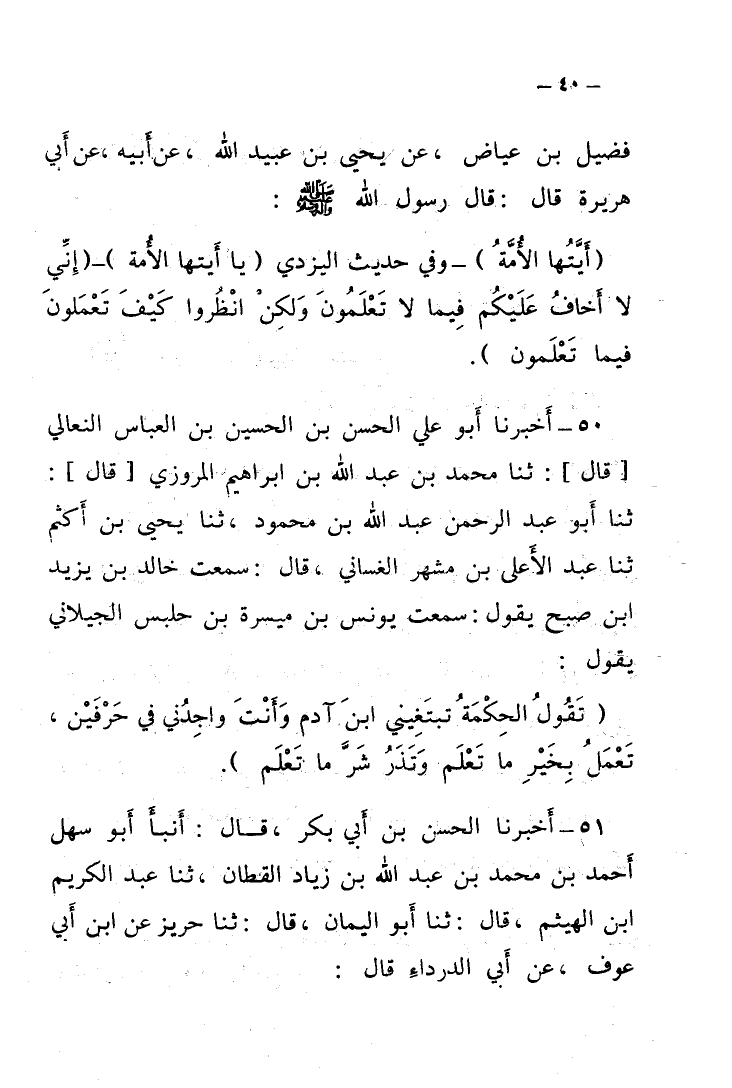 – ٤٠ –
فضيل بن عياض ، عن يحيى بن عبيد الله ، عن أَبيه ، عن أَبي
هريرة قال : قال رسول الله ﷺ :
( أَيَّتُها الأُمَّةُ ) – وفي حديث اليزدي ( يا أَيتها الأُمة ) – ( إِنِّي
لا أَخافُ عَلَيْكُم فِيما لا تَعْلَمُونَ وَلكِنْ انْظُروا كَيْفَ تَعْمَلونَ
فيما تَعْلَمون ) .
٥٠ – أَخبرنا أَبو علي الحسن بن الحسين بن العباس النعالي
[ قال ] : ثنا محمد بن عبد الله بن ابراهيم المروزي [ قال ] :
ثنا أَبو عبد الرحمن عبد الله بن محمود ، ثنا يحيى بن أَكثم
ثنا عبد الأَعلى بن مشهر الغساني ، قال : سمعت خالد بن يزيد
ابن صبح يقول : سمعت يونس بن ميسرة بن حلبس الجيلاني
يقول :
( تَقُولُ الحِكْمَةُ تبتَغِيني ابنَ آدم وَأَنْتَ واجِدُني في حَرْفَيْن ،
تَعْمَلُ بِخَيْرِ ما تَعْلَم وَتَذَرُ شَرَّ ما تَعْلَم ) .
٥١ – أَخبرنا الحسن بن أَبي بكر ، قـــال : أَنبأَ أَبو سهل
أَحمد بن محمد بن عبد الله بن زياد القطان ، ثنا عبد الكريم
ابن الهيثم ، قال : ثنا أَبو اليمان ، قال : ثنا حريز عن ابن أَبي
عوف ، عن أَبي الدرداءِ قال :